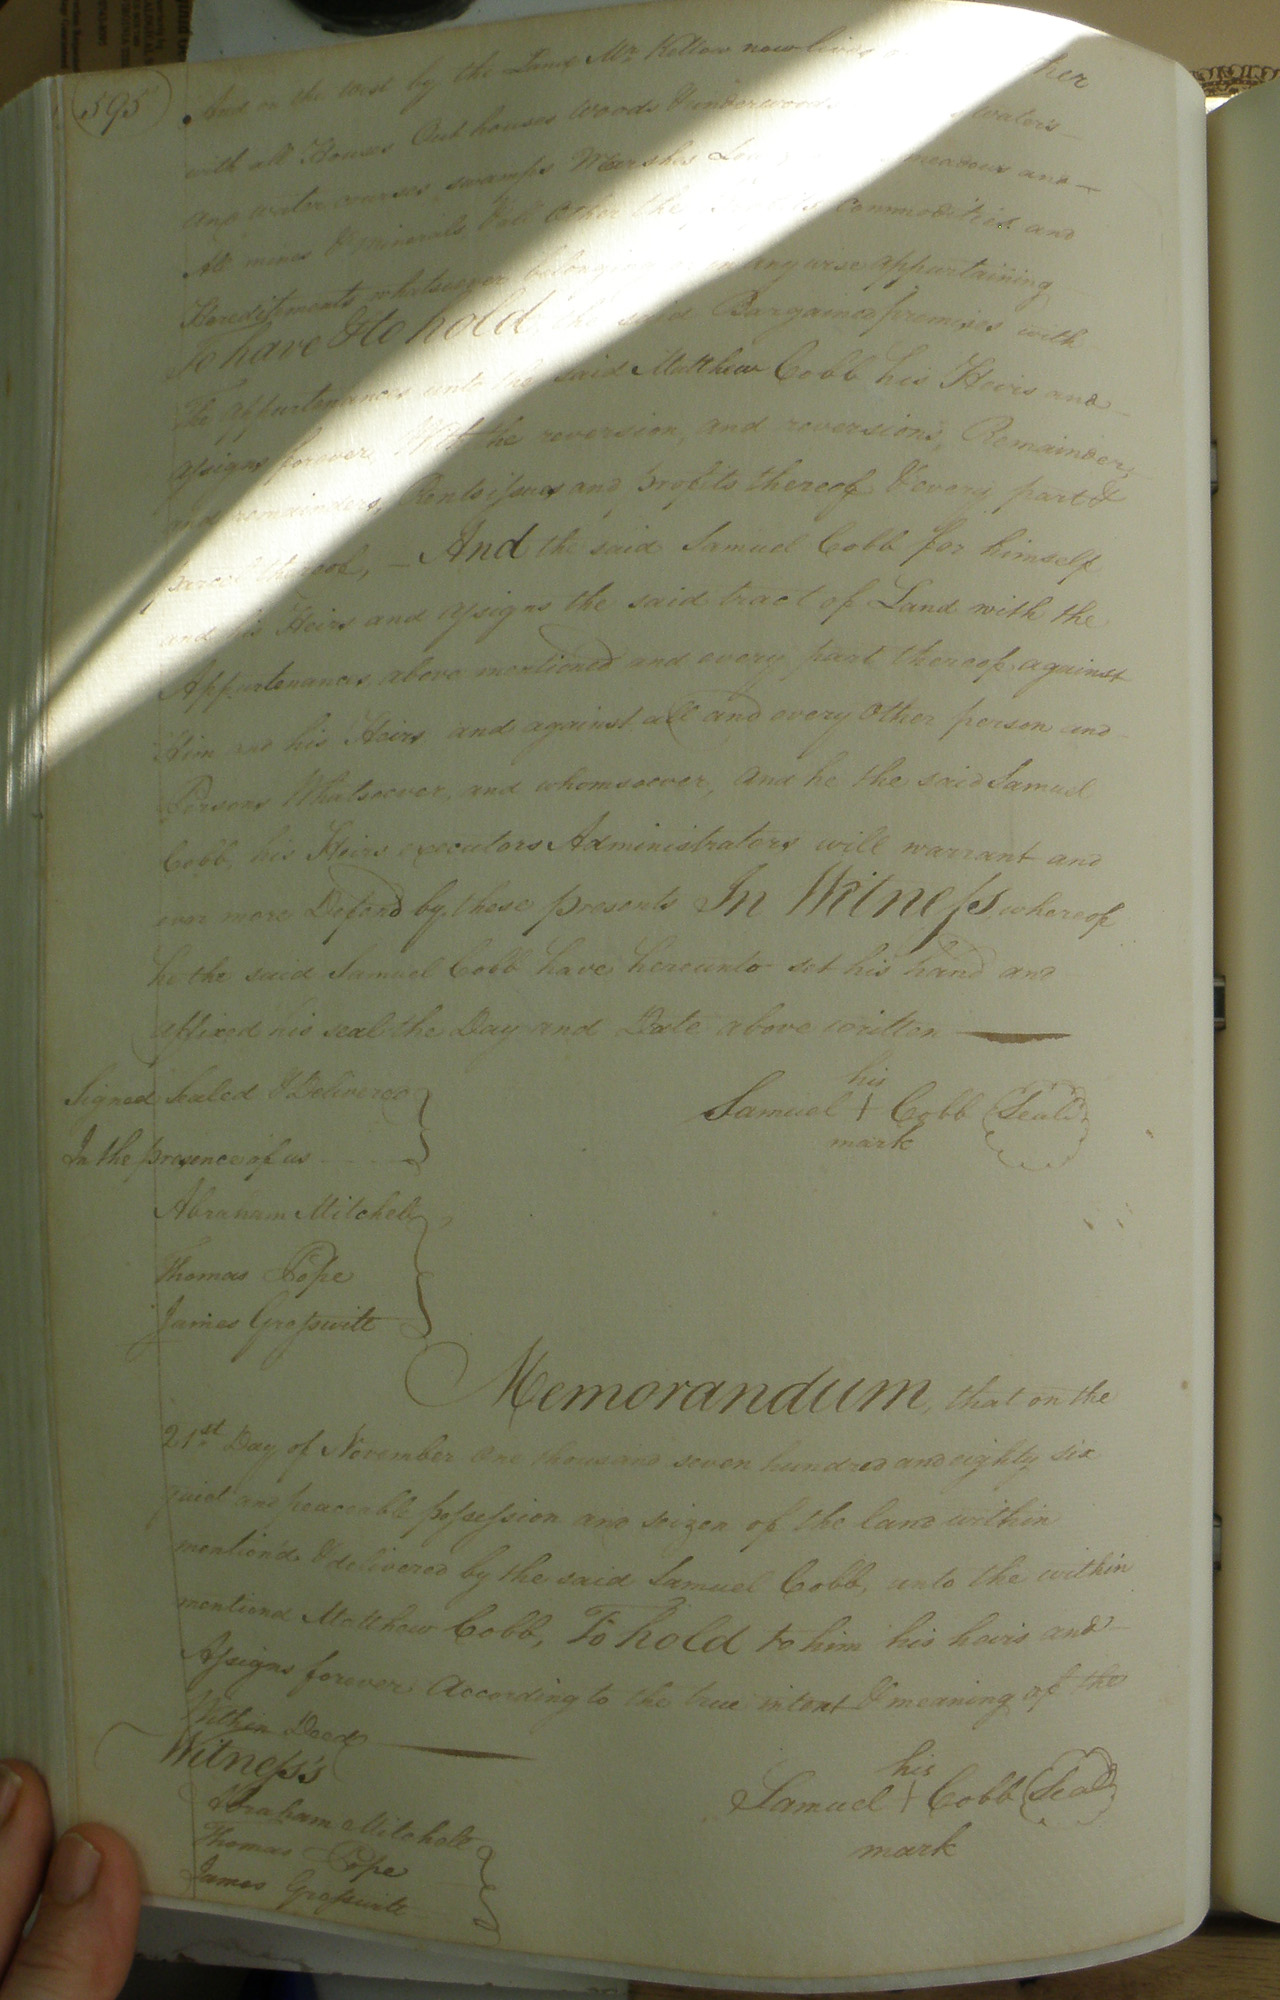 595
And on the West by the Land Mr. Kellow now lives ther
with all Houses Out houses Woods & underwoods waters
and water courses, swamps Marshes meadows and
All mines & minerals & all Other the Profits Commodities and
Hereditments whatsoever belonging or in any wise appurtaining
To have & to hold the said Bargained premises with
The appurtenances unto the said Matthew Cobb his Heirs and
assigns forever With the reversion, and reversions, Remainder,
and remainders, Rents issues and profits thereof & every part &
parcel thereof, - And the said Samuel Cobb for himself
and his Heirs and assigns the said tract of Land with the
Appurtenances above mentioned and every part thereof against
Him and his Heirs and against all and every Other person and
Persons Whatsoever, and whomsoever, and he the said Samuel
Cobb, his Heirs executors Administrators will warrant and
ever more Defend by these presents In Witness whereof
he the said Samuel Cobb have hereunto set his hand and
affixed his seal the Day and Date above written
Signed Sealed & Delivered
In the presence of us
his
Samuel + Cobb (Seal)
mark
Abraham Mitchell
Thomas Pope
James
Memorandum, that on the
21st Day of November One thousand seven hundred and eighty six
quiet and peaceable possession and seizen of the land within
mention'd & delivered by the said Samuel Cobb, unto the within
mentiond Matthew Cobb, To hold to him his heirs and
Assigns forever According to the true intent & meaning of the
Within Deed
Witness's
Abraham Mitchell
Thomas Pope
James
his
Samuel + Cobb (Seal)
mark